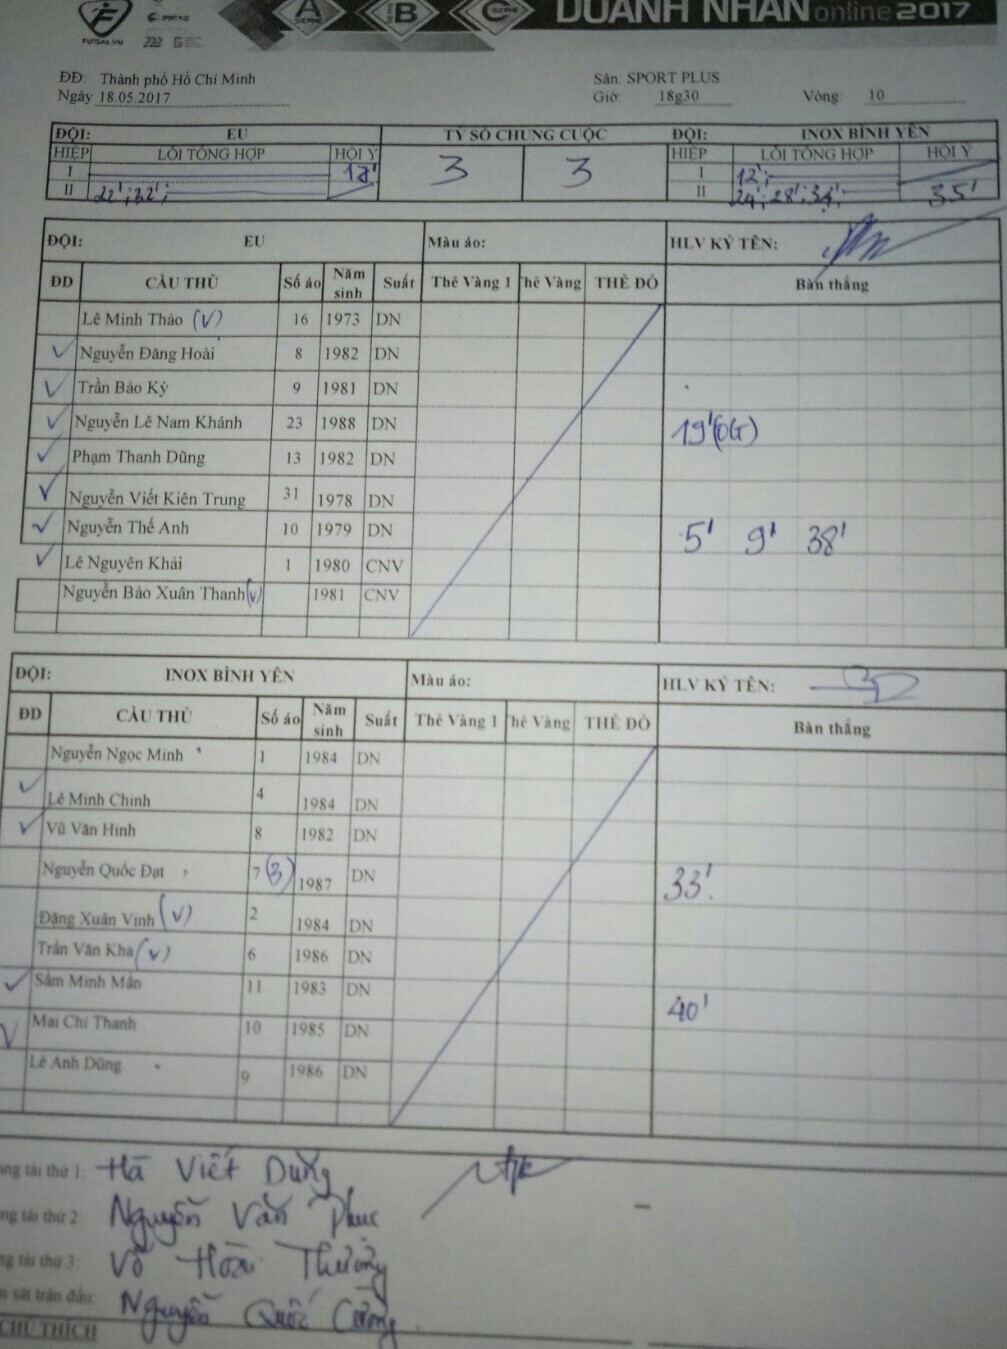 A B C DOANH NHÂN online 2017
FUTSALVN
ĐĐ: Thành phố Hồ Chí Minh Sân: SPORT PLUS
Ngày 18.05.2017 Giờ 18g30 Vòng 10
ĐỘI: EU TỶ SỐ CHUNG CUỘC ĐỘI: INOX BÌNH YÊN
HIỆP LỖI TỔNG HỢP HỘI Ý 3 3 HIỆP LỖI TỔNG HỢP HỘI Ý
I I 12';
II 22'; 32'; II 24'; 28'; 34'; 35'
ĐỘI: EU Màu áo: HLV KÝ TÊN:
ĐD CẦU THỦ Số áo Năm sinh Suất Thẻ Vàng 1 Thẻ Vàng THẺ ĐỎ Bàn thắng
Lê Minh Thảo (V) 16 1973 DN
Nguyễn Đăng Hoài 8 1982 DN
Trần Bảo Kỳ 9 1981 DN
Nguyễn Lê Nam Khánh 23 1988 DN 19'(OG)
Phạm Thanh Dũng 13 1982 DN
Nguyễn Viết Kiên Trung 31 1978 DN
Nguyễn Thế Anh 10 1979 DN 5' 9' 38'
Lê Nguyên Khải 1 1980 CNV
Nguyễn Bảo Xuân Thanh (v) 1981 CNV
ĐỘI: INOX BÌNH YÊN Màu áo: HLV KÝ TÊN:
ĐD CẦU THỦ Số áo Năm sinh Suất Thẻ Vàng 1 Thẻ Vàng THẺ ĐỎ Bàn thắng
Nguyễn Ngọc Minh 1 1984 DN
Lê Minh Chinh 4 1984 DN
Vũ Văn Hinh 8 1982 DN
Nguyễn Quốc Đạt 7 (3) 1987 DN 33'
Đặng Xuân Vinh (V) 2 1984 DN
Trần Văn Kha (v) 6 1986 DN
Sầm Minh Mẫn 11 1983 DN 40'
Mai Chí Thanh 10 1985 DN
Lê Anh Dũng 9 1986 DN
tài thứ 1: Hà Viết Dũng
tài thứ 2: Nguyễn Văn Phúc
tài thứ 3: Võ Hoài Thương
sát trận đấu: Nguyễn Quốc Cường
CHÚ THÍCH